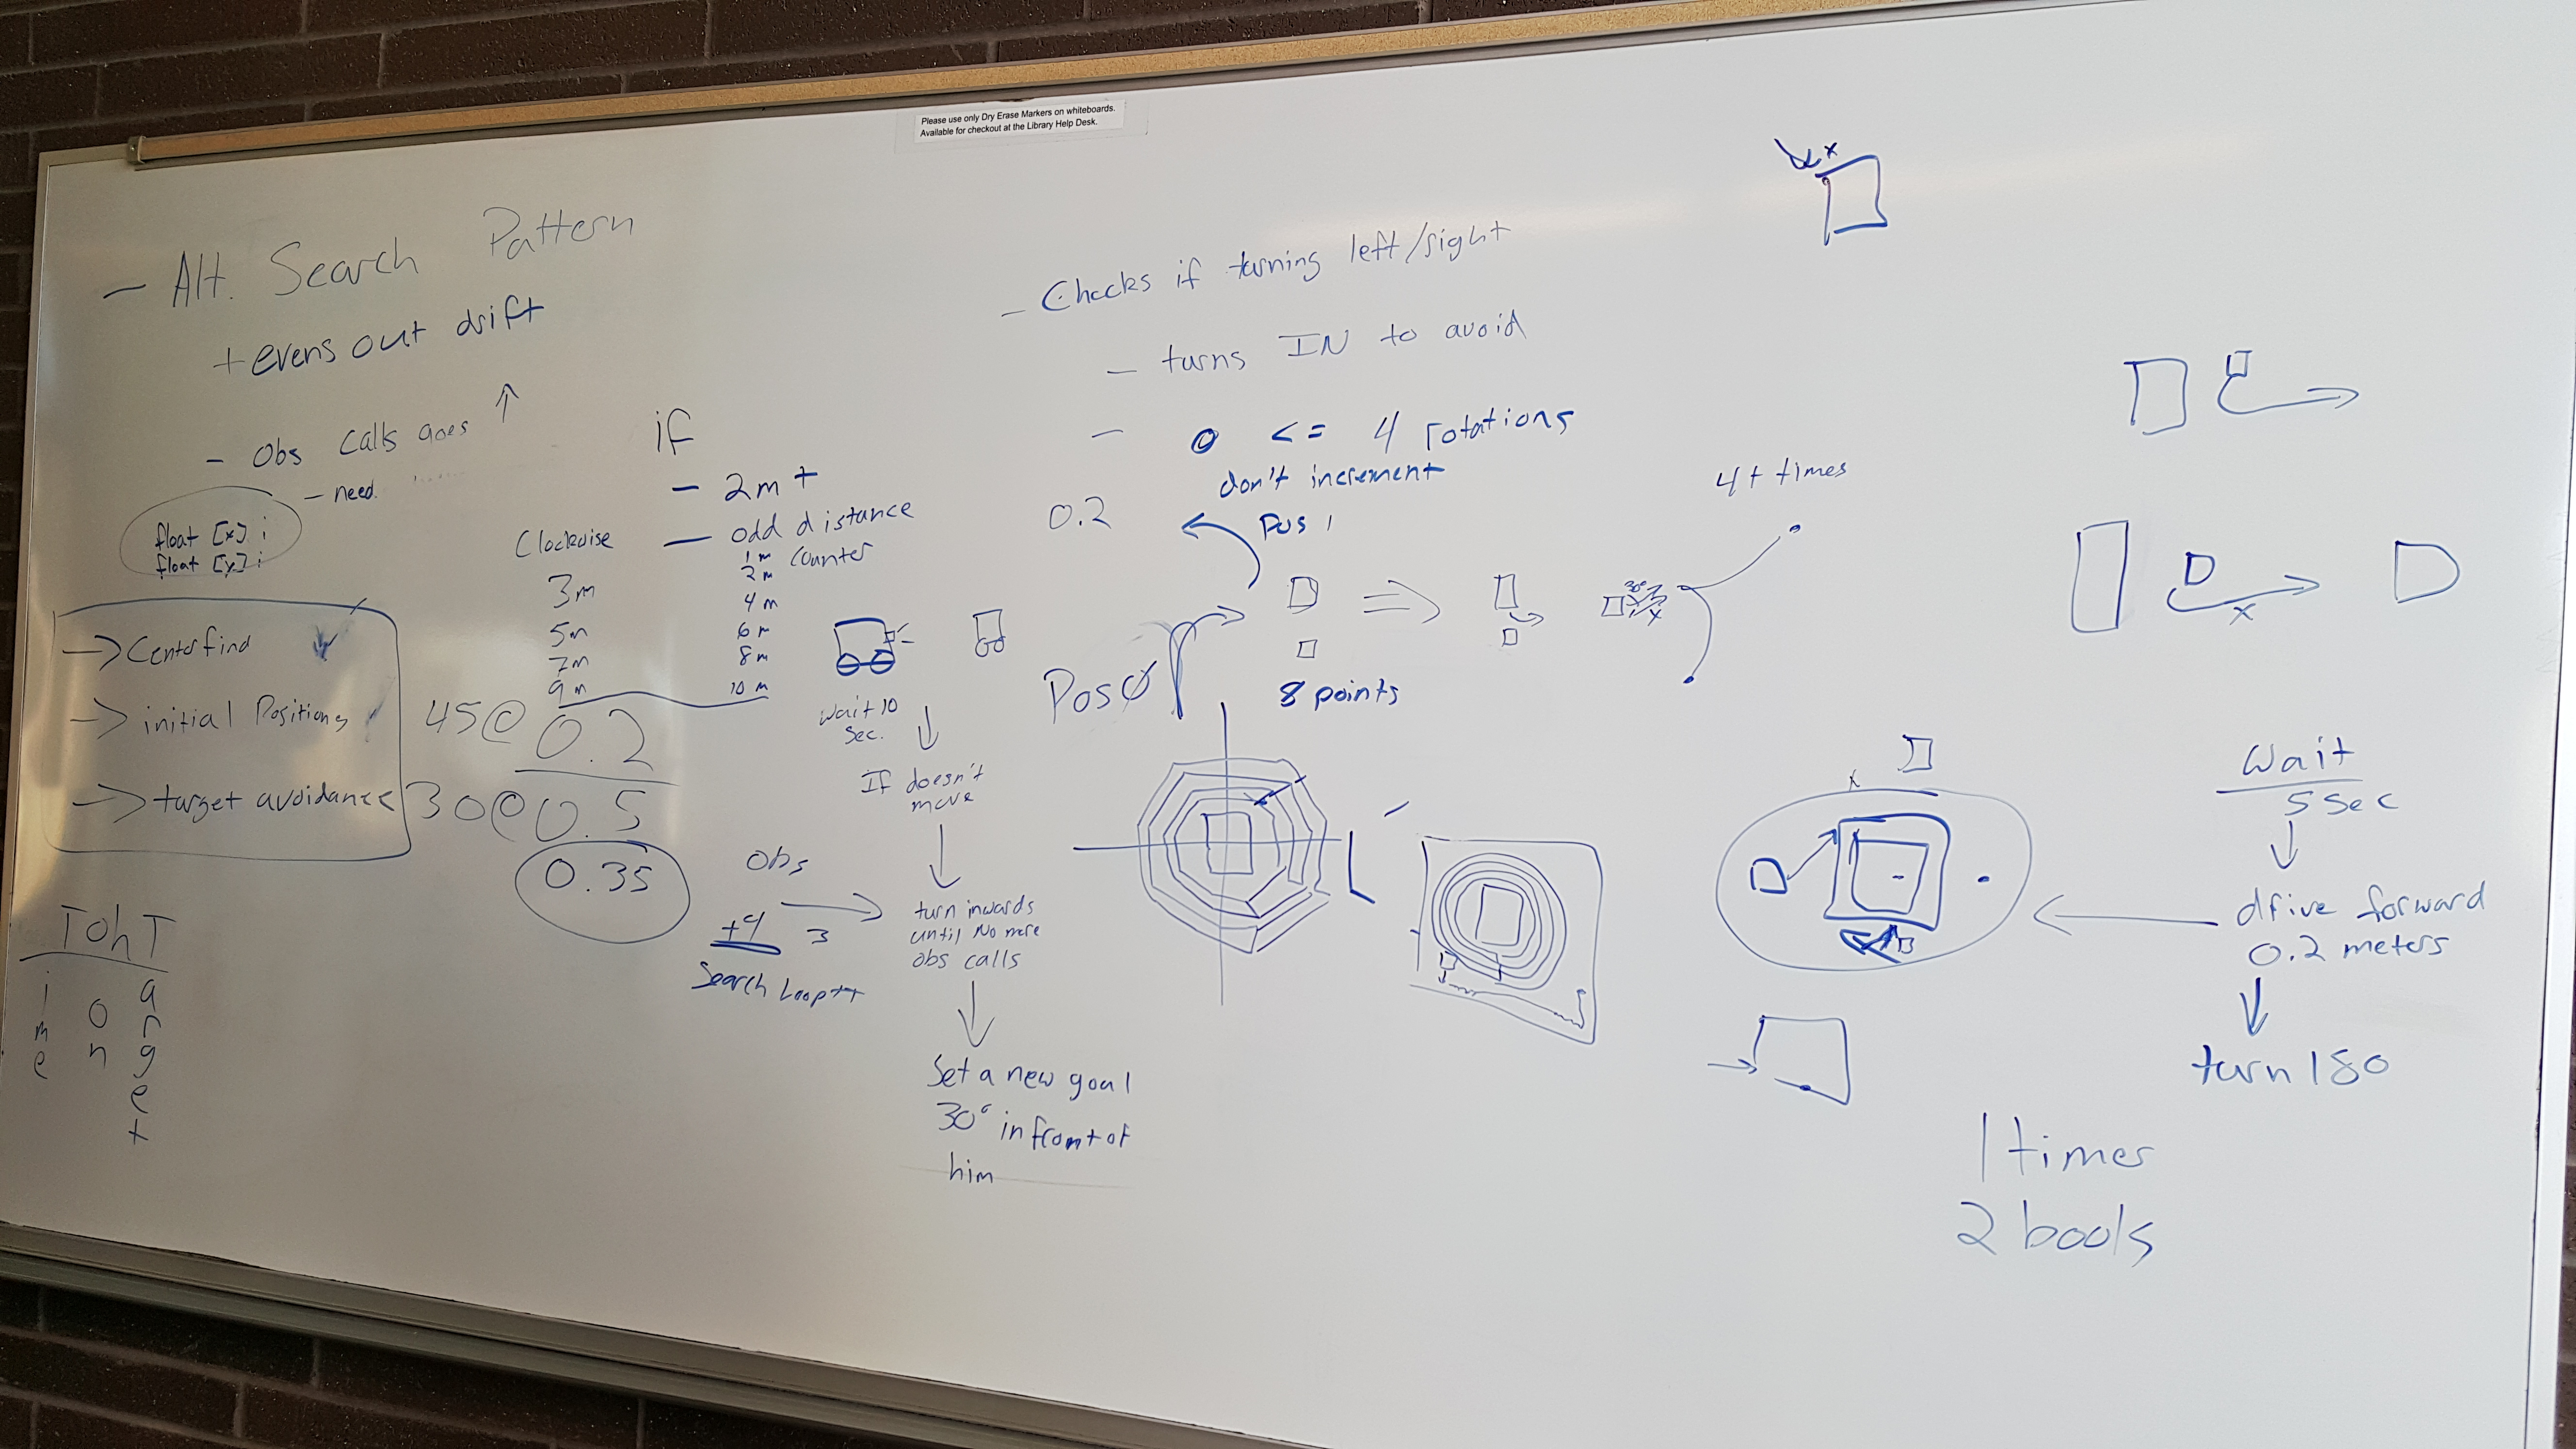 Please use only Dry Erase Markers on whiteboards.
Available for checkout at the Library Help Desk.
- Alt. Search Pattern
+ evens out drift
- Obs calls goes ↑
- need
float [x] i
float [y] i
→ Centerfind
→ initial Positions
→ target avoidance
Time
Ooh
Target
if
- 2m +
- odd distance
Clockwise
3m
5m
7m
9m
counter
1m
2m
4m
6m
8m
10m
45@ 0.2
30@ 0.5
0.35
wait 10
sec.
If doesn't
move
Obs
+4
3
Search Loop++
turn inwards
until No more
obs calls
Set a new goal
30° in front of
him
- Checks if turning left/right
- turns IN to avoid
- 0 <= 4 rotations
don't increment
0.2
Pos 1
Pos 0
8 points
30°
x
4+ times
x
x
x
Wait
5 Sec
drive forward
0.2 meters
turn 180
1 times
2 bools